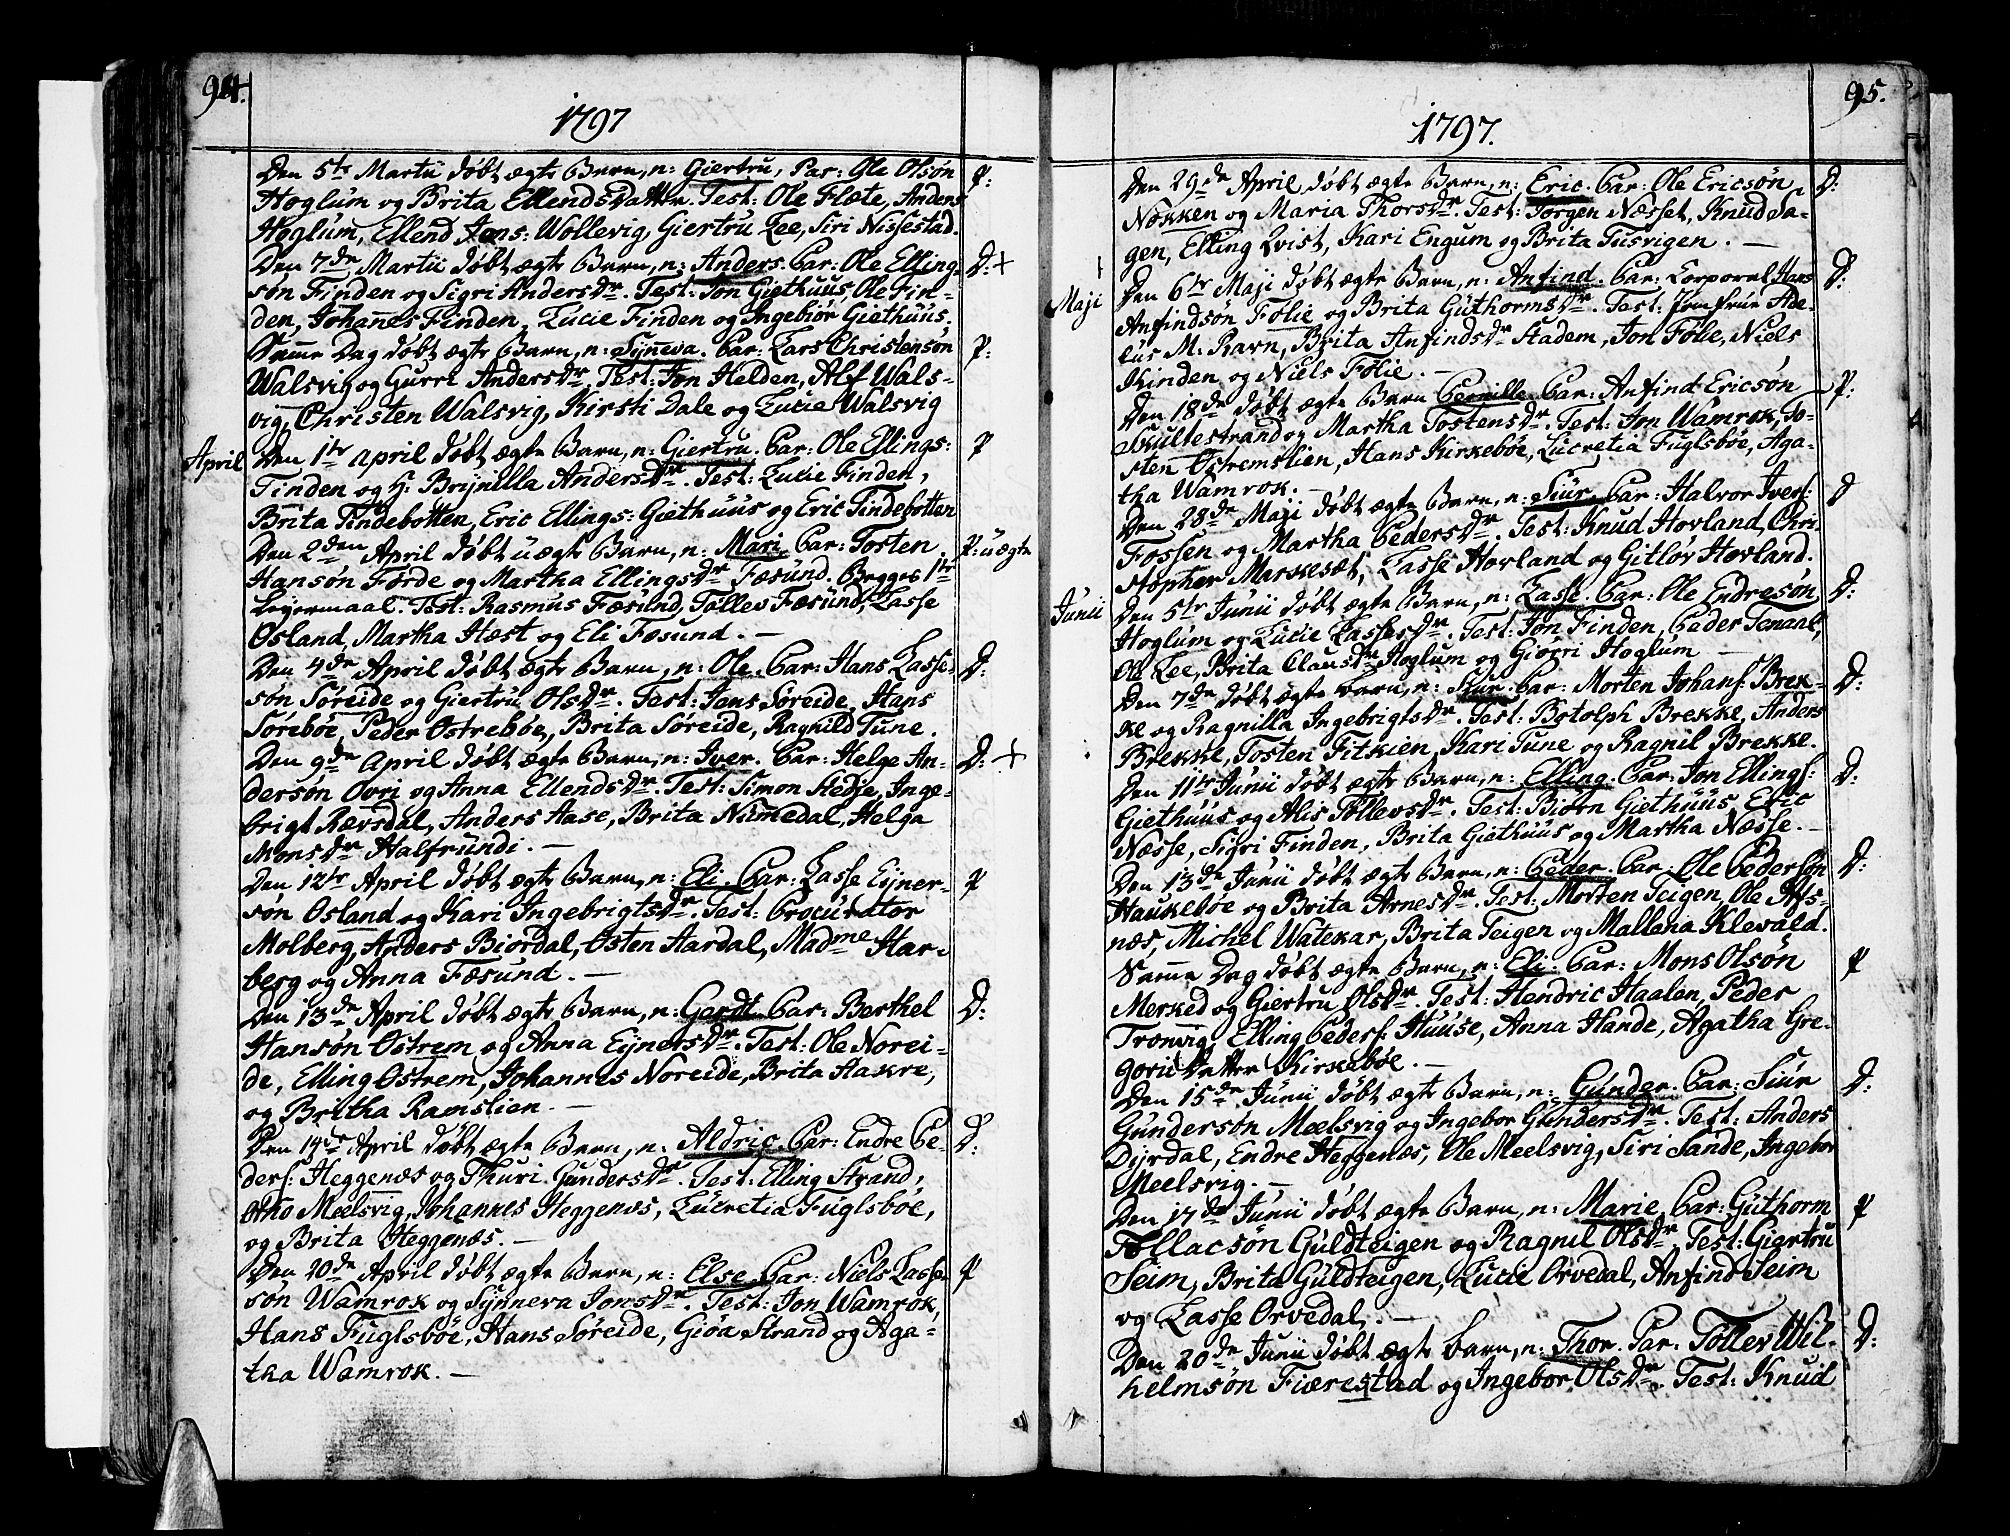 94.
1797
Den 5te Martii døbt ægte Barn, n: Giertru, Par: Ole Olsøn P:
Hoglum og Brita Ellends Datter. Test: Ole Flæte, Anders
Hoglum, Ellend Jens: Wollevig, Giertru Lee, Siri Nissestad.
Den 7de Martii døbt ægte Barn, n: Anders. Par: Ole Elling- D: +
søn Finden og Sigri Andersdr. Test: Jon Giethuus, Ole Fin-
den, Johannes Finden, Lucie Finden og Ingebiør Giethuus.
Samme Dag døbt ægte Barn, n: Synneva. Par: Lars Christensøn P:
Walsvig og Gurri Andersdr. Test: Jon Helden, Alf Wals-
vig, Christen Walsvig, Kirsti Dale og Lucie Walsvig
April Den 1te April døbt ægte Barn, n: Giertru. Par: Ole Ellings: P
Finden og H: Brynilla Andersdr. Test: Lucie Finden,
Brita Findebotten, Eric Ellings: Giethuus og Eric Findebotten
Den 2den April døbt uægte Barn, n: Mari. Par: Tosten P: uægte
Hansøn Førde og Martha Ellingsdr Fæsund. Begges 1te
Leyermaal. Test: Rasmus Fæsund, Tollev Fæsund, Lasse
Osland, Martha Hæst og Eli Fæsund. —
Den 4de April døbt ægte Barn, n: Ole. Par: Hans Lasse- D:
søn Søreide og Giertru Olsdr. Test: Jens Søreide, Hans
Sørebøe, Peder Østrebøe, Brita Søreide, Ragnild Tune.
Den 9de April døbt ægte Barn, n: Iver. Par: Helge An- D: +
dersøn Ovri og Anna Ellendsdr. Test: Simon Stedje, Inge-
brigt Rævsdal, Anders Aase, Brita Numedal, Helga
Monsdr Halfrundi. —
Den 12te April døbt ægte Barn, n: Eli. Par: Lasse Eyner- P
søn Osland og Kari Ingebrigtsdr. Test: Procurator
Molberg, Anders Biordal, Østen Aardal, Madme Har-
berg og Anna Fæsund. —
Den 13de April døbt ægte Barn, n: Gerdt. Par: Berthel D:
Hansøn Østrem og Anna Eynersdr. Test: Ole Norei-
de, Elling Østrem, Johannes Noreide, Brita Hakre,
og Britha Ramslien. —
Den 14de April døbt ægte Barn, n: Aldric. Par: Endre Pe- D:
ders: Heggenæs og Thuri Gundersdr. Test: Elling Strand,
Otho Meelsvig, Johannes Heggenæs, Lucretia Fuglsbøe,
og Brita Heggenæs. —
Den 20de April døbt ægte Barn, n: Else. Par: Niels Lasse- P
søn Wamrok og Synneva Jonsdr. Test: Jon Wamrok,
Hans Fuglsbøe, Hans Søreide, Giøa Strand og Aga-
tha Wamrok. —
95.
1797.
Den 29de April døbt ægte Barn, n: Eric. Par: Ole Ericsøn D:
Nøkken og Maria Thorsdr. Test: Jørgen Næsset, Knud Ha-
gen, Elling Qvist, Kari Engum og Brita Tusvigen. —
Maji Den 6te Maji døbt ægte Barn, n: Anfind. Par: Corporal Hans D:
Anfindsøn Følie og Brita Guthormsdr. Test: Jomfrue Ade-
lus M: Ravn, Brita Anfindsdr Stadem, Jon Følie, Niels
Kinden og Niels Følie. —
Den 18de døbt ægte Barn Pernille. Par: Anfind Ericsøn P:
Skultestrand og Martha Tostensdr. Test: Jon Wamrok, To-
sten Østremslien, Hans Kirkebøe, Lucretia Fuglsbøe, Aga-
tha Wamrok. —
Den 28de Maji døbt ægte Barn, n: Siur. Par: Halvor Ivers: D
Fossen og Martha Pedersdr. Test: Knud Hovland, Chri-
stopher Maskesæt, Lasse Hovland og Gitløv Hovland.
Junii Den 5te Junii døbt ægte Barn, n: Lasse. Par: Ole Endresøn D:
Hoglum og Lucie Lassesdr. Test: Jon Finden, Peder Tenaal,
Ole Lee, Brita Clausdr Hoglum og Giørri Hoglum —
Den 7de døbt ægte Barn, n: Siur. Par: Morten Johans: Brek- D:
ke og Ragnilla Ingebrigtsdr. Test: Botolph Brekke, Anders
Brekke, Tosten Fitkien, Kari Tune og Ragnil Brekke.
Den 11te Junii døbt ægte Barn, n: Elling. Par: Jon Ellings: D:
Giethuus og Alis Tollevsdr. Test: Biørn Giethuus, Eric
Næsse, Sigri Finden, Brita Giethuus og Martha Næsse. —
Den 13de Junii døbt ægte Barn, n: Peder. Par: Ole Pedersøn D:
Haukebøe og Brita Arnesdr. Test: Morten Teigen, Ole Afs-
næs, Michel Watekar, Brita Teigen og Mallena Klevald.
Samme Dag døbt ægte Barn, n: Eli. Par: Mons Olsøn P
Merked og Giertru Olsdr. Test: Hendric Haalen, Peder
Tronvig, Elling Peders: Huuse, Anna Hande, Agatha Gre-
gorii Datter Kirkebøe. —
Den 15de Junii døbt ægte Barn, n: Gunder. Par: Siur D:
Gundersøn Meelsvig og Ingebor Gundersdr. Test: Anders
Dyrdal, Endre Heggenæs, Ole Meelsvig, Siri Sande, Ingebor
Meelsvig. —
Den 17de Junii døbt ægte Barn, n: Marie. Par: Guthorm P
Tollacsøn Guldteigen og Ragnil Olsdr. Test: Giertru
Seim, Brita Guldteigen, Lucie Orvedal, Anfind Seim
og Lasse Orvedal. —
Den 20de Junii døbt ægte Barn, n: Thor. Par: Tollev Wil- D:
helmsøn Fiærestad og Ingebor Olsdr. Test: Knud